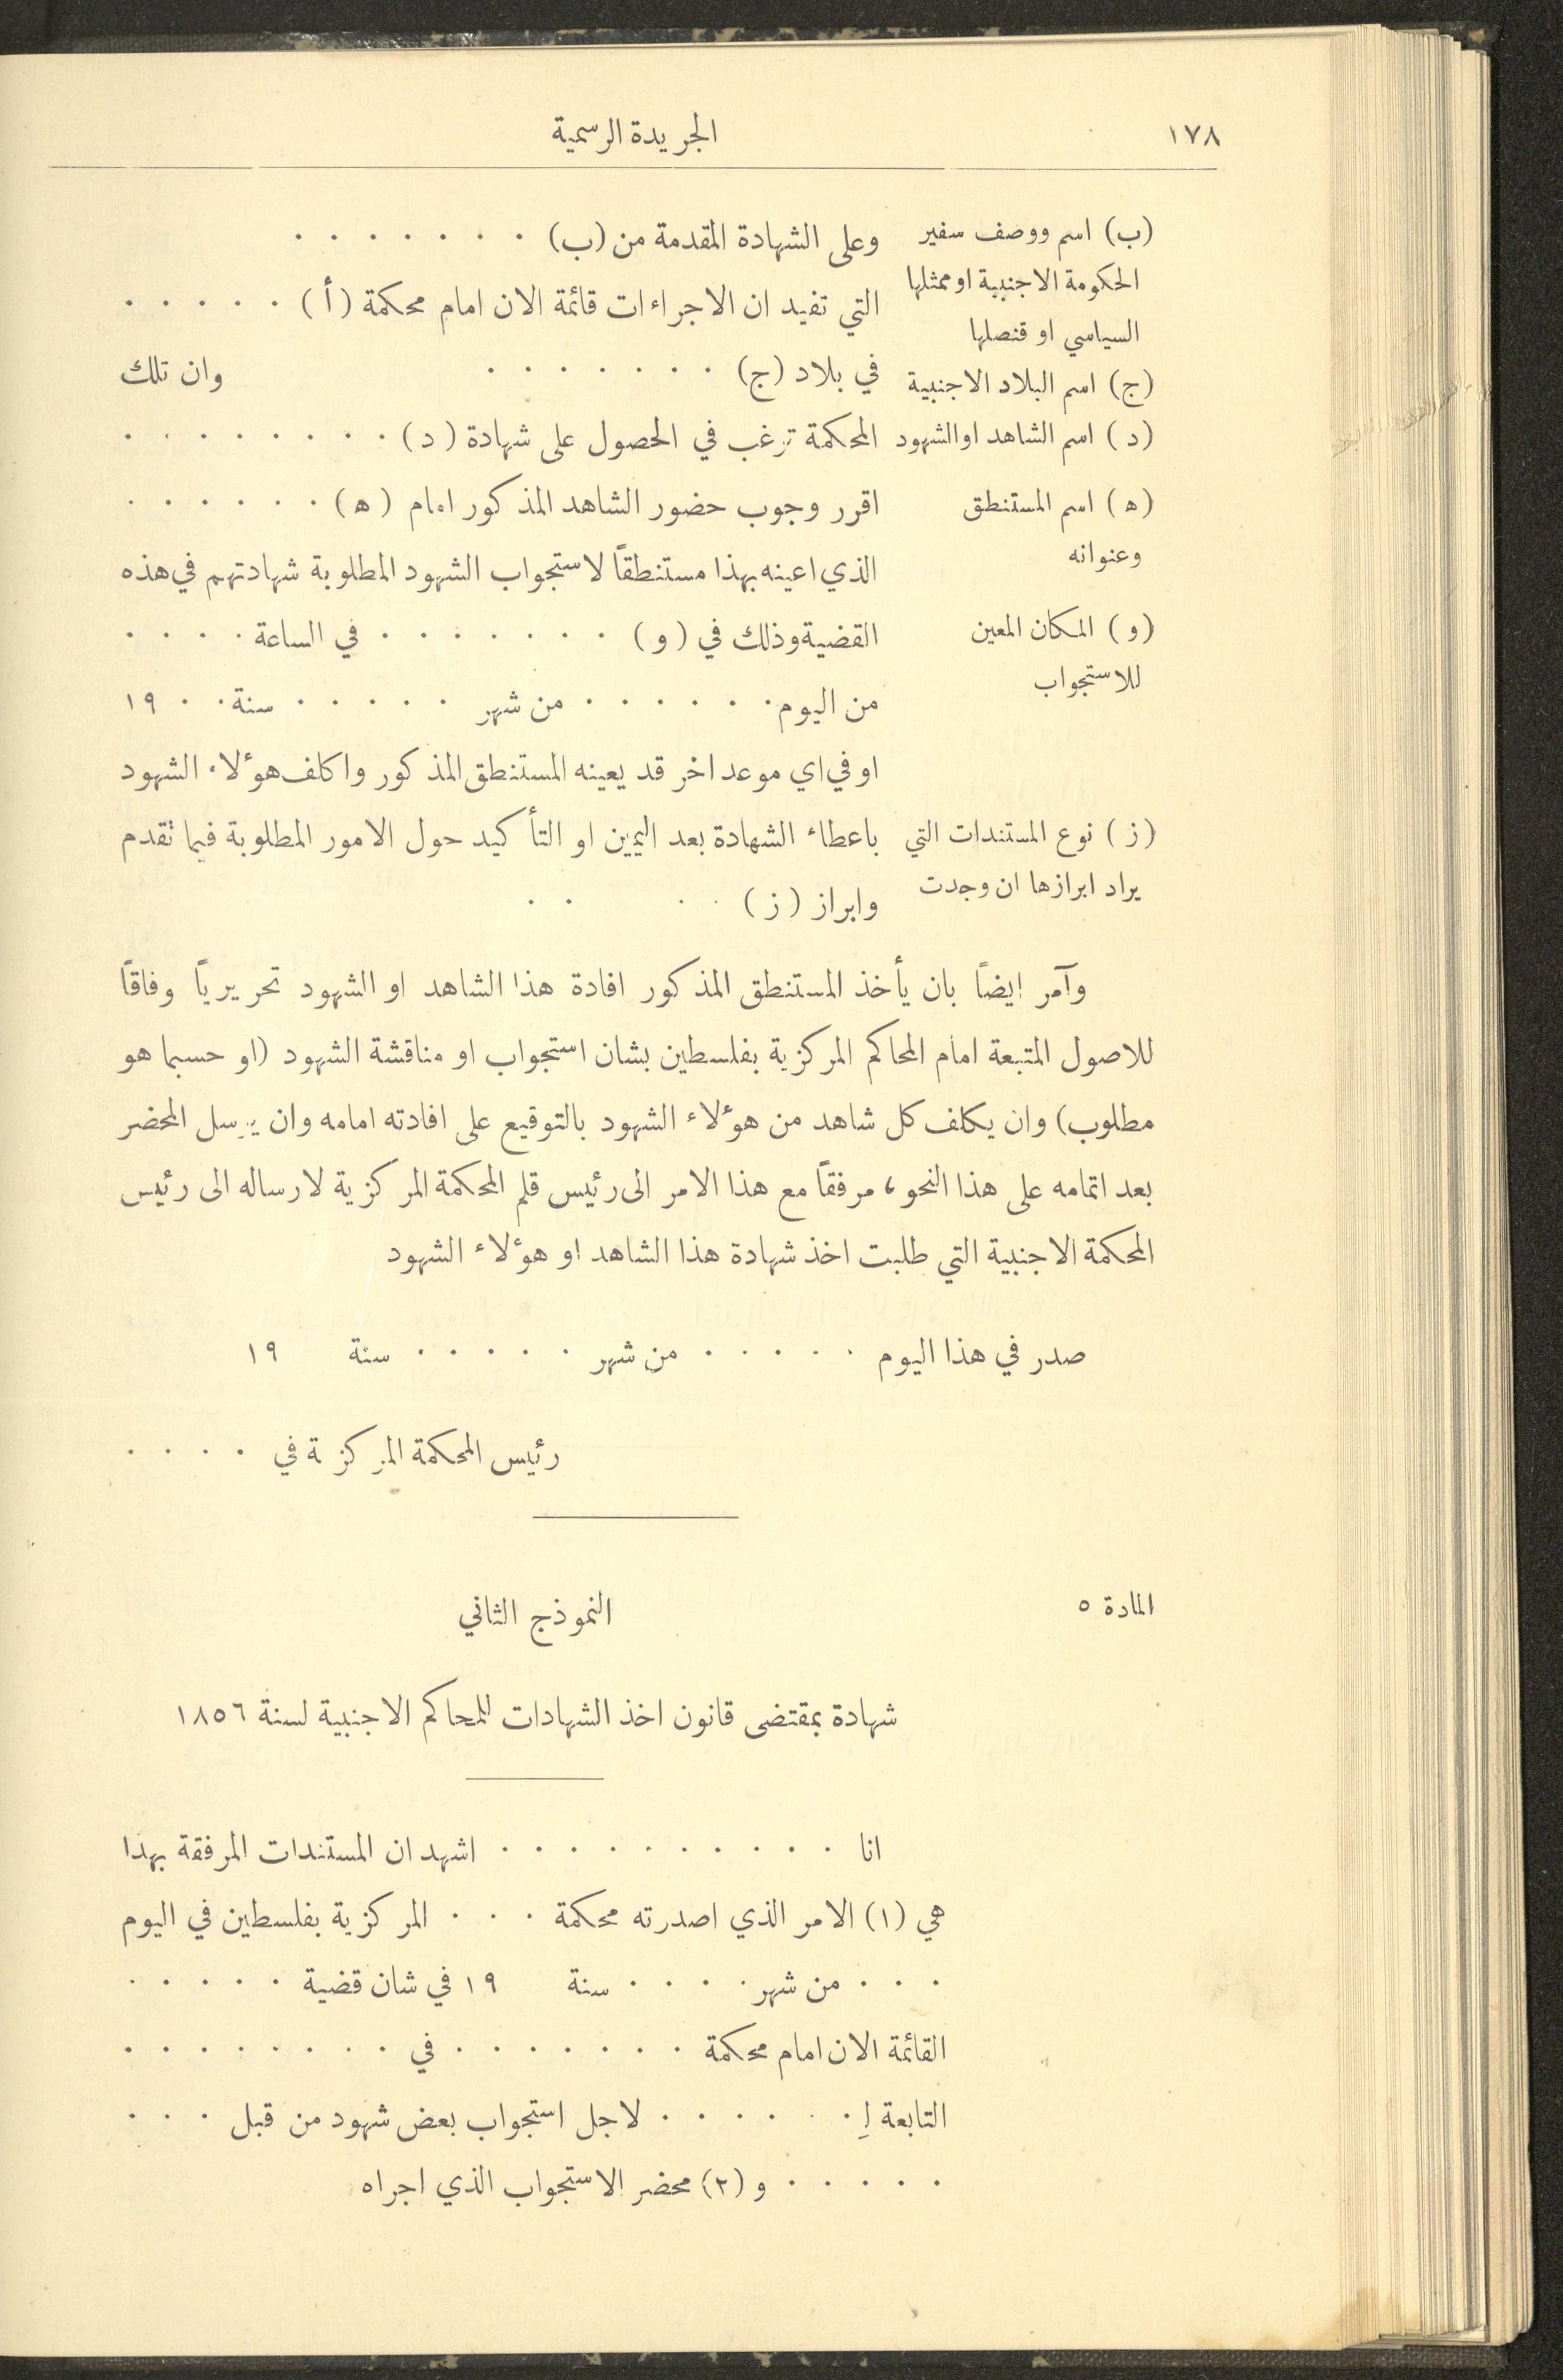 ١٧٨ الجريدة الرسمية
(ب) اسم ووصف سفير
الحكومة الاجنبية او ممثلها
السياسي او قنصلها
(ج) اسم البلاد الاجنبية
(د) اسم الشاهد او الشهود
(ه) اسم المستنطق
وعنوانه
(و) المكان المعين
للاستجواب
(ز) نوع المستندات التي
يراد ابرازها ان وجدت
وعلى الشهادة المقدمة من (ب) . . . . . . .
التي تفيد ان الاجراءات قائمة الان امام محكمة (أ) . . . . .
في بلاد (ج) . . . . . . . وان تلك
المحكمة ترغب في الحصول على شهادة (د) . . . . . . . .
اقرر وجوب حضور الشاهد المذكور امام (ه) . . . . . .
الذي اعينه بهذا مستنطقاً لاستجواب الشهود المطلوبة شهادتهم في هذه
القضية وذلك في (و) . . . . . . . في الساعة . . . .
من اليوم . . . . . . من شهر . . . . . سنة . . ١٩
او في اي موعد اخر قد يعينه المستنطق المذكور واكلف هوٴلاء الشهود
باعطاء الشهادة بعد اليمين او التأكيد حول الامور المطلوبة فيما تقدم
وابراز (ز) . . . .
وآمر ايضاً بان يأخذ المستنطق المذكور افادة هذا الشاهد او الشهود تحريرياً وفاقاً
للاصول المتبعة امام المحاكم المركزية بفلسطين بشان استجواب او مناقشة الشهود (او حسبما هو
مطلوب) وان يكلف كل شاهد من هوٴلاء الشهود بالتوقيع على افادته امامه وان يرسل المحضر
بعد اتمامه على هذا النحو، مرفقاً مع هذا الامر الى رئيس قلم المحكمة المركزية لارساله الى رئيس
المحكمة الاجنبية التي طلبت اخذ شهادة هذا الشاهد او هوٴلاء الشهود
صدر في هذا اليوم . . . . . من شهر . . . . . سنة ١٩
رئيس المحكمة المركزية في . . . .
المادة ٥
النموذج الثاني
شهادة بمقتضى قانون اخذ الشهادات للمحاكم الاجنبية لسنة ١٨٥٦
انا . . . . . . . . . . اشهد ان المستندات المرفقة بهذا
هي (١) الامر الذي اصدرته محكمة . . . المركزية بفلسطين في اليوم
. . . من شهر . . . . سنة ١٩ في شان قضية . . . . .
القائمة الان امام محكمة . . . . . . . في . . . . . . . .
التابعة لِ . . . . . . لاجل استجواب بعض شهود من قبل . . .
. . . . . و (٢) محضر الاستجواب الذي اجراه